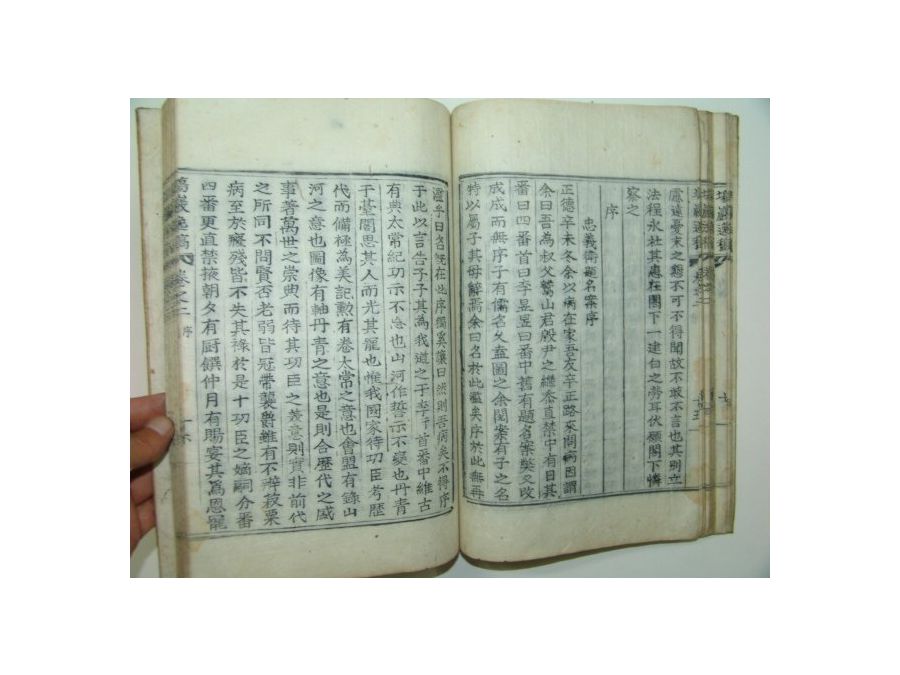 慮遠憂末之懸不可不得聞故不敢不言也其別立
法程永杜其患在閤下一建白之勞耳伏願閤下憐
察之
序
忠義衛題名案序
正德辛未冬余以病在家吾友辛正路來問病因謂
余曰吾為叔父鷲山君殷尹之繼忝直禁中有日其
番曰四番首曰李昱昱曰番中舊有題名案獘又改
成成而無序子有儒名久盍圖之余閱案有子之名
特以屬子其毋辭焉余曰名於此濫矣序於此無再
濫乎曰名旣在此序獨奚讓曰然則吾病矣不得序
于此以言告子子其為我道之于李可首番中維古
有典太常紀功示不忘也山河作誓示不變也丹青
于㙜閣思其人而光其寵也惟我國家待功臣考歷
代而備極為美記勲有卷太常之意也會盟有錄山
河之意也圖像有軸丹青之意也是則合歷代之盛
事著萬世之崇典而待其功臣之義意則實非前代
之所同不問賢否老弱皆冠帶襲爵雖有不辨菽粟
病至於癈殘皆不失其祿於是十功臣之嫡嗣分番
四番更直禁掖朝夕有厨饌仲月有賜宴其為恩寵
萬巖逸稿 卷之二 序